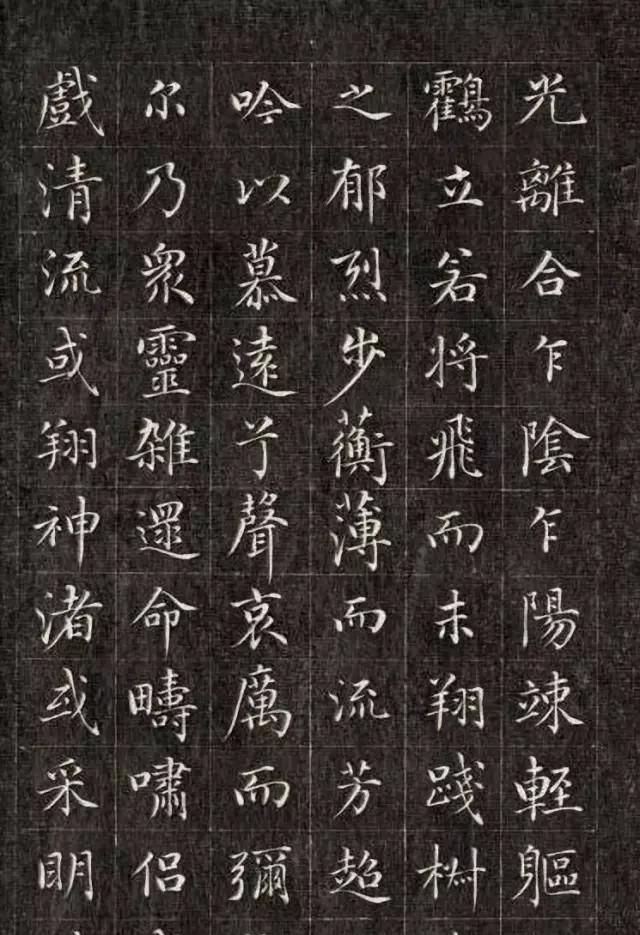 光離合乍陰乍陽竦輕軀
鸖立若將飛而未翔踐椒
之郁烈步蘅薄而流芳超
吟以慕遠兮聲哀厲而彌
尔乃衆靈雜遝命疇嘯侶
戲清流或翔神渚或采明